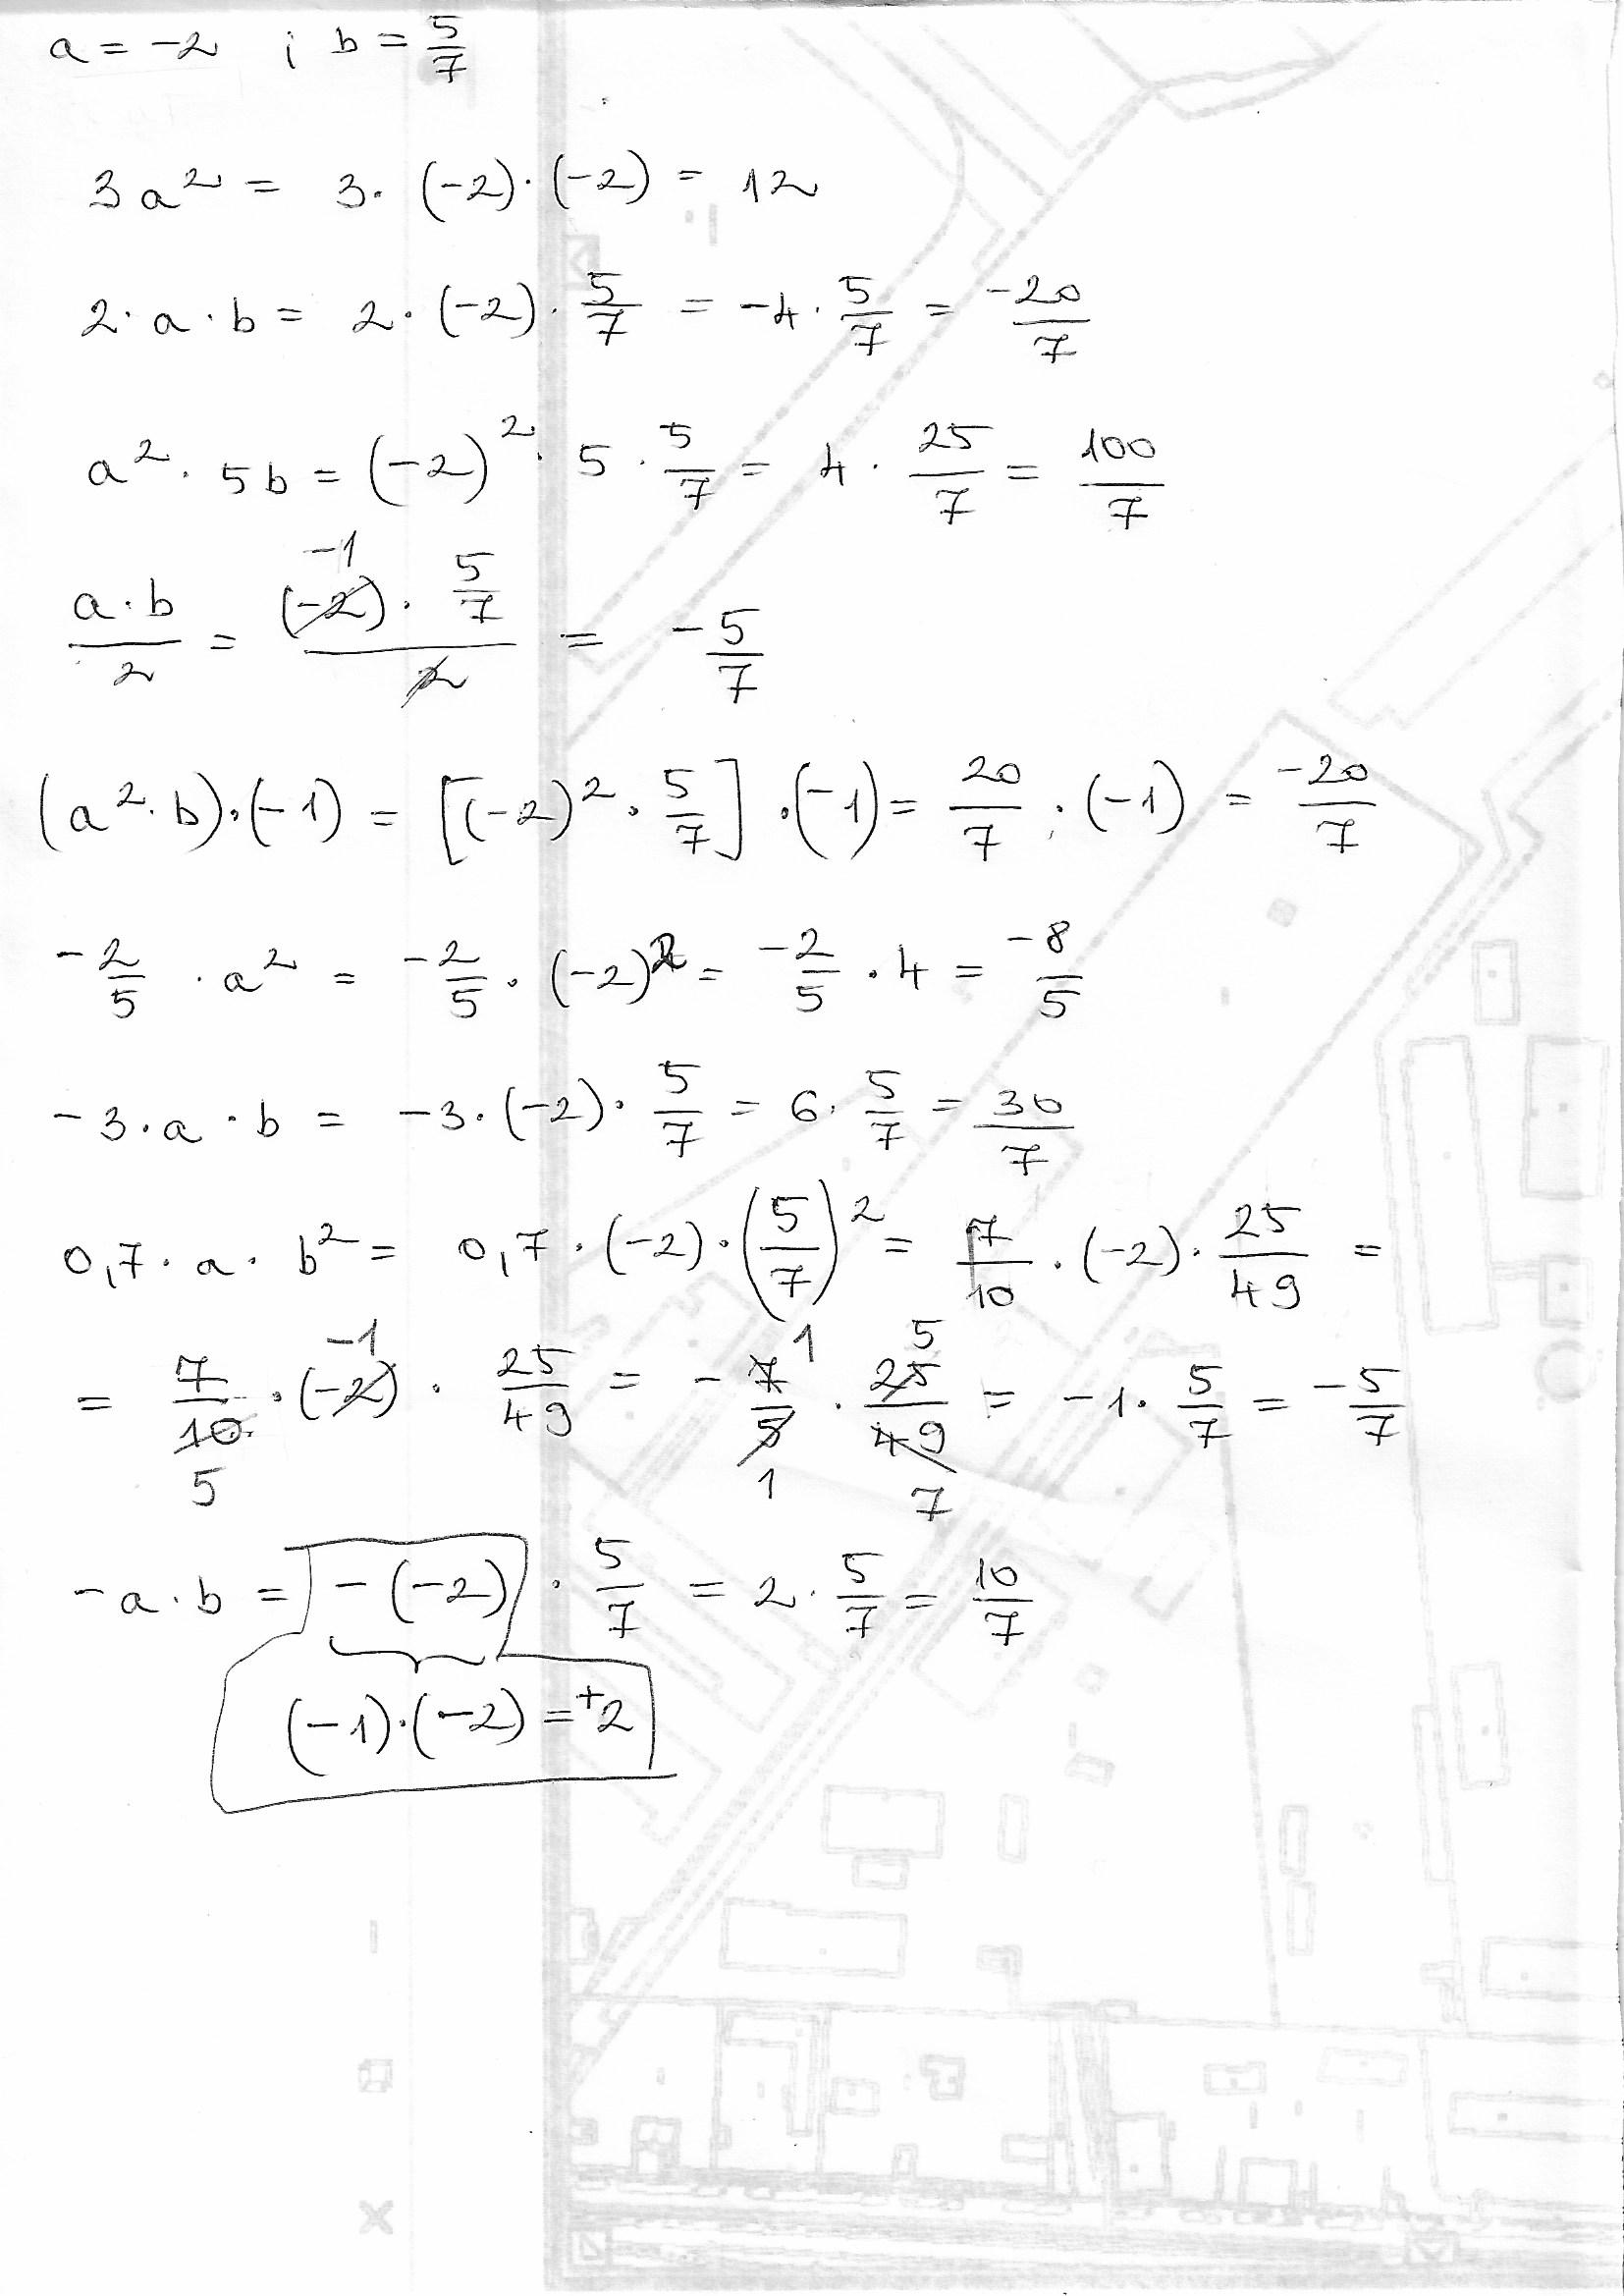 a = -2 i b = 5/7
3a² = 3·(-2)·(-2) = 12
2·a·b = 2·(-2)·5/7 = -4·5/7 = -20/7
a²·5b = (-2)²·5·5/7 = 4·25/7 = 100/7
a·b/2 = (-2)·5/7 / 2 = -5/7
-1
(a²·b)·(-1) = [(-2)²·5/7]·(-1) = 20/7·(-1) = -20/7
-2/5·a² = -2/5·(-2)² = -2/5·4 = -8/5
-3·a·b = -3·(-2)·5/7 = 6·5/7 = 30/7
0,7·a·b² = 0,7·(-2)·(5/7)² = 7/10·(-2)·25/49 =
-1 1 5
= 7/10·(-2)·25/49 = -7/5·25/49 = -1·5/7 = -5/7
5 1 7
-a·b = -(-2)·5/7 = 2·5/7 = 10/7
(-1)·(-2) = +2